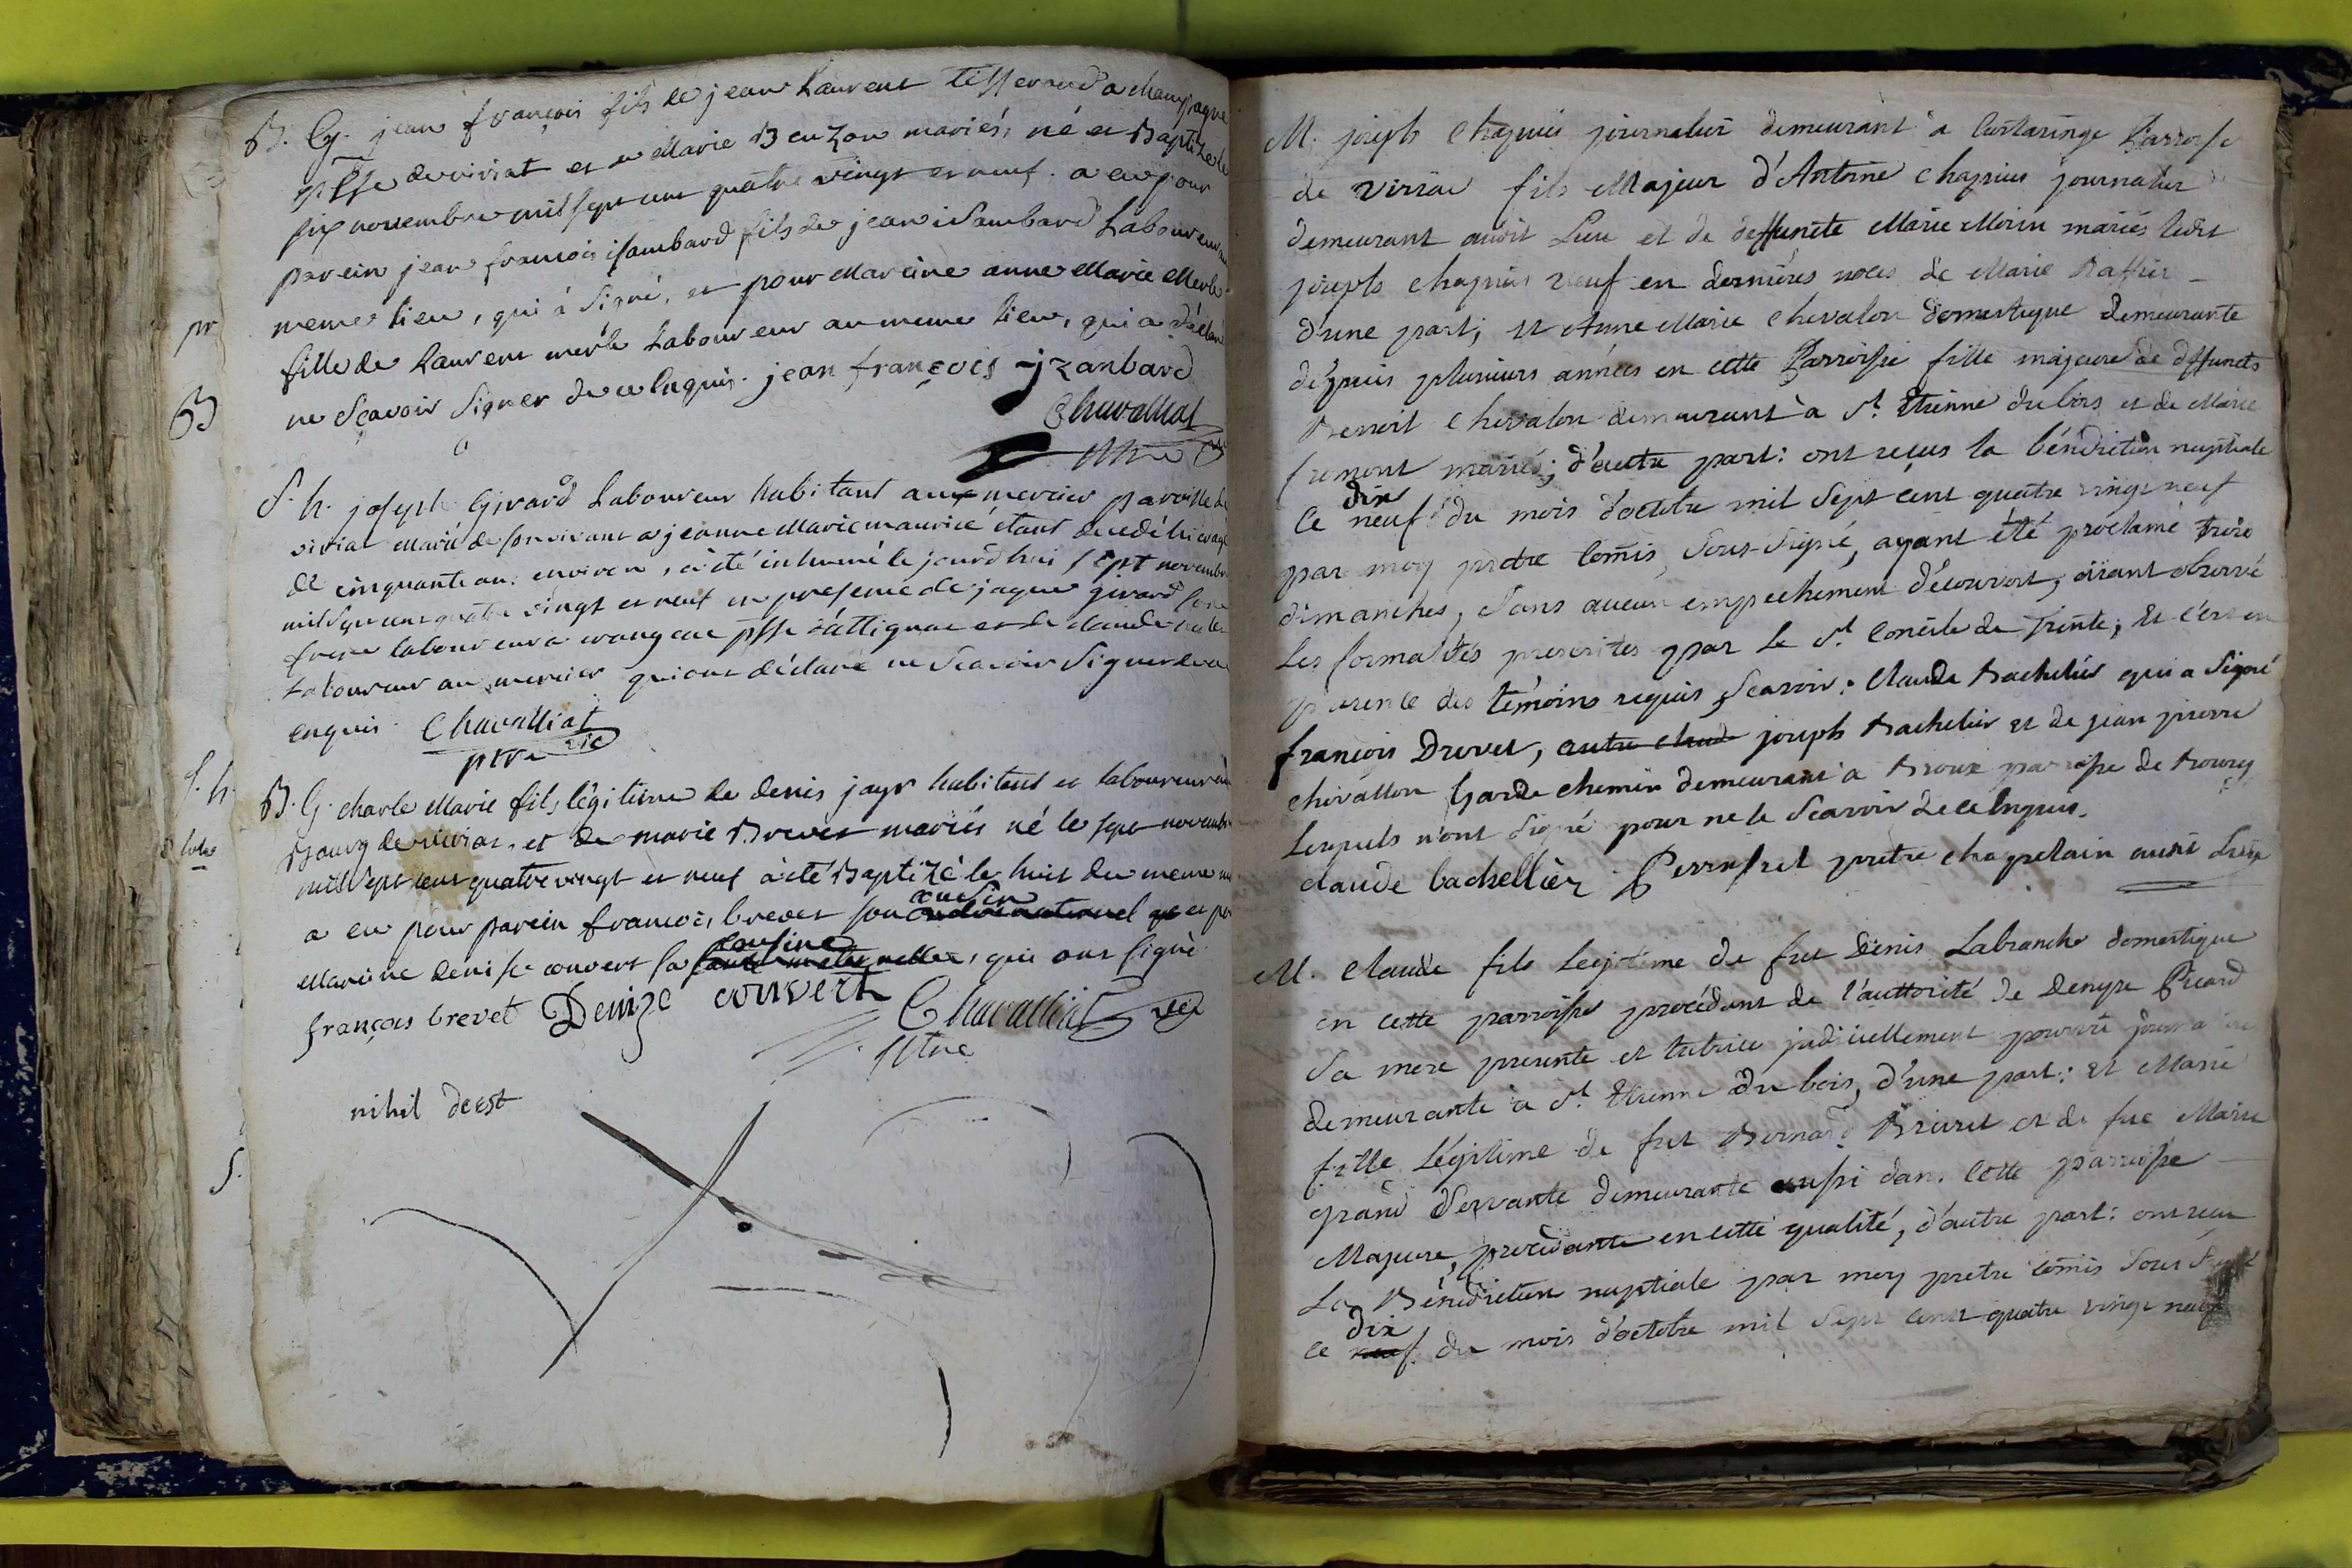 B. G. jean françois fils de jean Laurent tisserand a champagne
psse de viriat et de Marie Beuzon mariés, né et Baptizé le
six novembre mil sept cent quatre vingt et neuf. a eu pour
parein jean françois isambard fils de jean isambard Laboureur au
meme lieu, qui à signé, et pour Mareine anne Marie Merle
fille de Laurent merle Laboureur au meme lieu, qui a déclaré
ne sçavoir signer de ce enquis. jean françois jzanbard
Chavalliat
ptre
S. h. joseph Girard Laboureur habitant aux mercier paroisse de
viriat Marié de son vivant a jeanne Marie maurice étant decedé hier agé
de cinquante ans environ, à été inhumé le jourd'hui sept novembre
mil sept cent quatre vingt et neuf en presence de jaque girard son
frere laboureur a psse d'attignac et de claude
Laboureur au mercier qui ont déclaré ne sçavoir signer de ce
enquis. Chavalliat
ptre vic
B. G. charle Marie fils légitime de denis jayr habitant et laboureur au
Bourg de viriat, et de marie Brevet mariés né le sept novembre
mil sept cent quatre vingt et neuf à été Baptizé le huit du meme
a eu pour parein françois brevet son cousin et pr
Mareine denise convert sa cousine, qui ont signé.
françois brevet Denize convert Chavalliat vic
ptre
nihil deest
M. joseph Chapuis journalier demeurant à Curtaringe Parroisse
de viriat fils Majeur d'Antoine Chapuis journalier
demeurant audit Lieu et de deffuncte Marie Morin mariés ledit
joseph chapuis veuf en dernières noces de Marie Raffin
d'une part; et Anne Marie Chevalon domestique demeurante
depuis plusieurs années en cette Parroisse fille majeure de deffuncts
Benoit Chevalon demeurant à St. Etienne du bois et de Marie
fremont mariés; d'autre part: ont reçus la bénédiction nuptiale
dix
ce neuf du mois d'octobre mil sept cent quatre vingt neuf
par moy prêtre comis, sous-signé, ayant été proclamé trois
dimanches, sans aucun empechement découvert, aïant observé
les formalités prescrites par le St. Concile de Trente; et c'est en
presence des témoins requis, scavoir: Claude Bachelier qui a signé
françois Drevet, autre claude joseph Bachelier et de jean pierre
chevallon Garde chemin demeurant à Broux parroisse de Bourg
lesquels n'ont signé pour ne le scavoir de ce enquis.
claude bachellier Perruset prêtre chapelain aussi
M. Claude fils Legitime de fut Denis Labranche domestique
en cette parroisse procédant de l'authorité de Denyse Picard
sa mere presente et tutrice judiciellement pourvüe
demeurante à St. Etienne du bois, d'une part: et Marie
fille Légitime de fut Bernard Brevet et de fue Marie
grand servante demeurante aussi dans cette parroisse
Majeure, procédante en cette qualité, d'autre part: ont recu
La Bénédiction nuptiale par moy prêtre comis sous signé
dix
ce neuf du mois d'octobre mil sept cent quatre vingt neuf